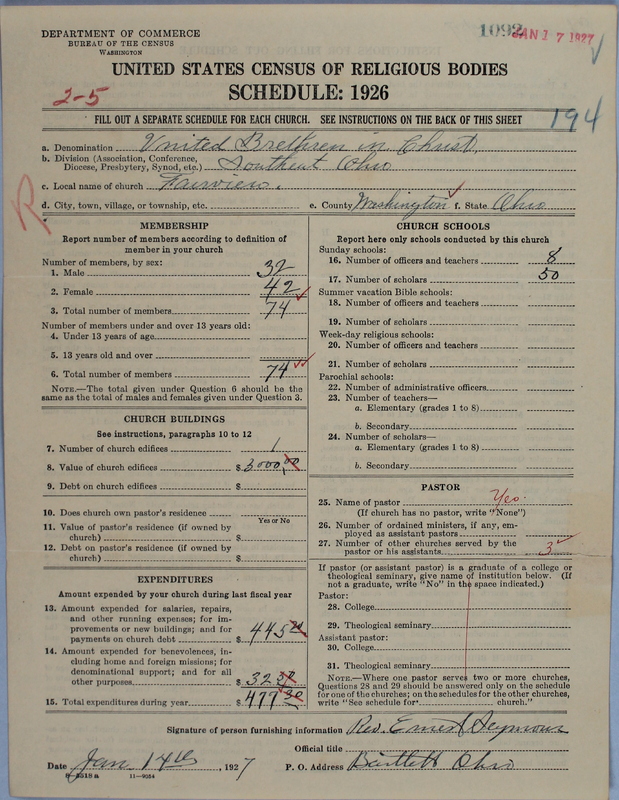 DEPARTMENT OF COMMERCE
BUREAU OF THE CENSUS
WASHINGTON
1092 JAN 17 1927
UNITED STATES CENSUS OF RELIGIOUS BODIES
SCHEDULE: 1926
2-5
FILL OUT A SEPARATE SCHEDULE FOR EACH CHURCH. SEE INSTRUCTIONS ON THE BACK OF THIS SHEET
194
a. Denomination United Brethren in Christ
b. Division (Association, Conference, Diocese, Presbytery, Synod, etc.) Southeast Ohio
c. Local name of church Fairview.
d. City, town, village, or township, etc. e. County Washington f. State Ohio
R
MEMBERSHIP
Report number of members according to definition of
member in your church
Number of members, by sex:
1. Male 32
2. Female 42
3. Total number of members 74
Number of members under and over 13 years old:
4. Under 13 years of age
5. 13 years old and over
6. Total number of members 74
NOTE.—The total given under Question 6 should be
same as the total of males and females given under Question 3.
CHURCH BUILDINGS
See instructions, paragraphs 10 to 12
7. Number of church edifices 1
8. Value of church edifices $ 3000.00
9. Debt on church edifices $
10. Does church own pastor's residence
Yes or No
11. Value of pastor's residence (if owned by
church) $
12. Debt on pastor's residence (if owned by
church) $
EXPENDITURES
Amount expended by your church during last fiscal year
13. Amount expended for salaries, repairs,
and other running expenses; for im-
provements or new buildings; and for
payments on church debt $ 445
14. Amount expended for benevolences, in-
cluding home and foreign missions; for
denominational support; and for all
other purposes $ 32
15. Total expenditures during year $ 477 30
CHURCH SCHOOLS
Report here only schools conducted by this church
Sunday schools:
16. Number of officers and teachers 8
17. Number of scholars 50
Summer vacation Bible schools:
18. Number of officers and teachers
19. Number of scholars
Week-day religious schools:
20. Number of officers and teachers
21. Number of scholars
Parochial schools:
22. Number of administrative officers
23. Number of teachers—
a. Elementary (grades 1 to 8)
b. Secondary
24. Number of scholars—
a. Elementary (grades 1 to 8)
b. Secondary
PASTOR
25. Name of pastor Yes.
(If church has no pastor, write "None")
26. Number of ordained ministers, if any, em-
ployed as assistant pastors
27. Number of other churches served by the
pastor or his assistants 3
If pastor (or assistant pastor) is a graduate of a college or
theological seminary, give name of institution below. (If
not a graduate, write "No" in the space indicated.)
Pastor:
28. College
29. Theological seminary
Assistant pastor:
30. College
31. Theological seminary
NOTE.—Where one pastor serves two or more churches,
Questions 28 and 29 should be answered only on the schedule
for one of the churches; on the schedules for the other churches,
write "See schedule for church."
Signature of person furnishing information Rev. Ernest Seymour
Official title
Date Jan 14th, 1927 P. O. Address Bartlett Ohio
8-5318 a 11-9054